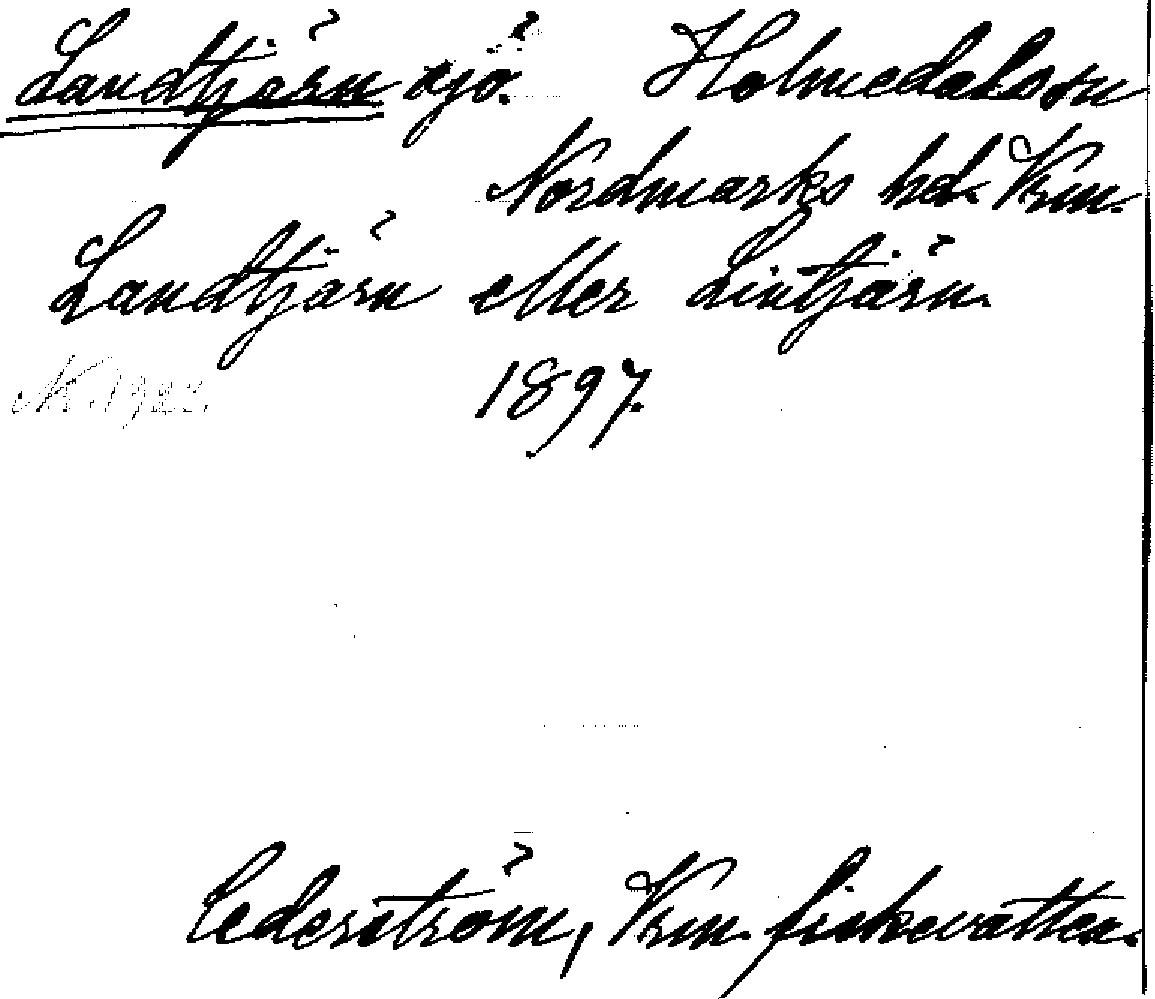 Landtjärn sjö. Holmedals sn
Nordmarks hd. Vrm.
Landtjärn eller Lintjärn.
1897.
Cederström, Vrm. fiskevatten.